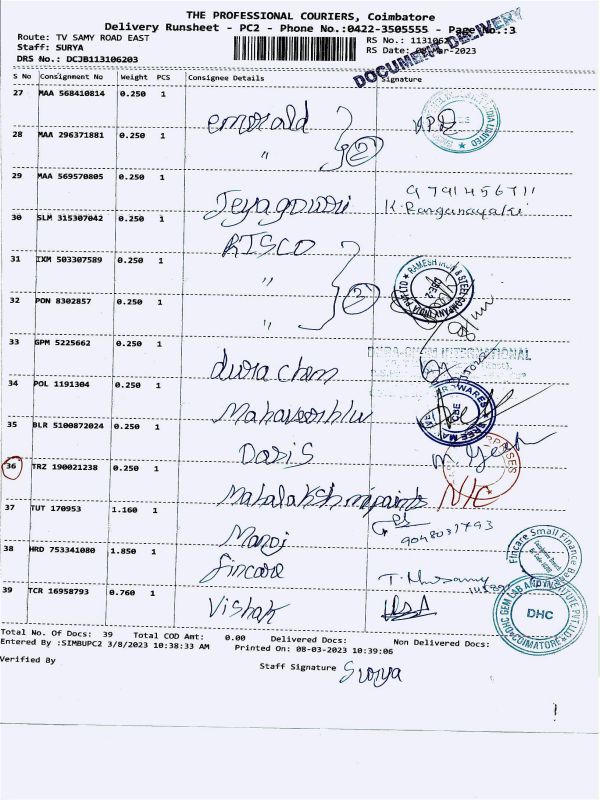 THE PROFESSIONAL COURIERS, Coimbatore
Delivery Runsheet - PC2 - Phone No.:0422-3505555 - Page No.:3
Route: TV SAMY ROAD EAST
Staff: SURYA
DRS No.: DCJB113106203
RS Date: Mar-2023
DOCUMENT DELIVERY
S No Consignment No Weight PCS Consignee Details Signature
27 MAA 568410814 0.250 1 emerald
28 MAA 296371881 0.250 1 " 2
29 MAA 569570805 0.250 1 Jeyagowri 9791456711
K. Ranganayaki
30 SLM 315307042 0.250 1 RISCO
31 IXM 503307589 0.250 1 "
RAMESH IRON & STEEL COMPANY INDIA PVT LTD
32 PON 8302857 0.250 1 " 2
33 GPM 5225662 0.250 1 dura chem
DURA-CHEM INTERNATIONAL
34 POL 1191304 0.250 1
35 BLR 5100872024 0.250 1
36 TRZ 190021238 0.250 1 Mahalakshmi paints
37 TUT 170953 1.160 1 Manoj
9048031793
38 HRD 753341080 1.850 1 fincare
Fincare Small Finance Bank
39 TCR 16958793 0.760 1 Vishak
DHC GEM LAB AND INSTITUTE PVT.LTD
DHC
COIMATORE
Total No. Of Docs: 39 Total COD Amt: 0.00 Delivered Docs: Non Delivered Docs:
Entered By :SIMBUPC2 3/8/2023 10:38:33 AM Printed On: 08-03-2023 10:39:06
Verified By Staff Signature Surya